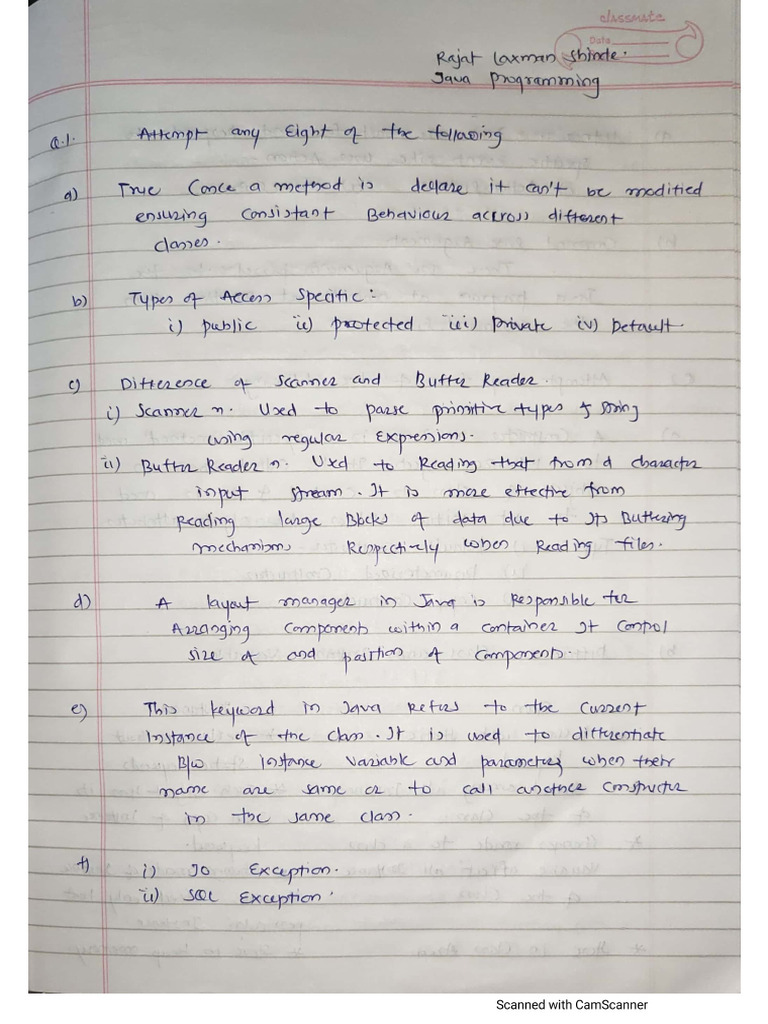 classmate
Date
Rajat Laxman Shinde.
Java Programming
Q.1. Attempt any Eight of the following
a) True Conce a method is declare it can't be modified
ensuring consistant Behaviour accross different
classes.
b) Types of Access Specific:
i) public ii) protected iii) private iv) Default.
c) Difference of Scanner and Buffer Reader.
i) Scanner n. Used to parse primitive types & string
using regular Expressions.
ii) Buffer Reader n. Used to Reading that from a character
input stream. It is more effective from
Reading large Blocks of data due to Its Buffering
mechanism Respectively when Reading files.
d) A layout manager in Java is Responsible for
Arranging components within a container It control
size of and position of components.
e) This keyword in Java Refers to the current
Instance of the class. It is used to differentiate
B/w instance variable and parameters when their
name are same or to call another constructer
in the same class.
f) i) IO Exception.
ii) SQL Exception.
Scanned with CamScanner